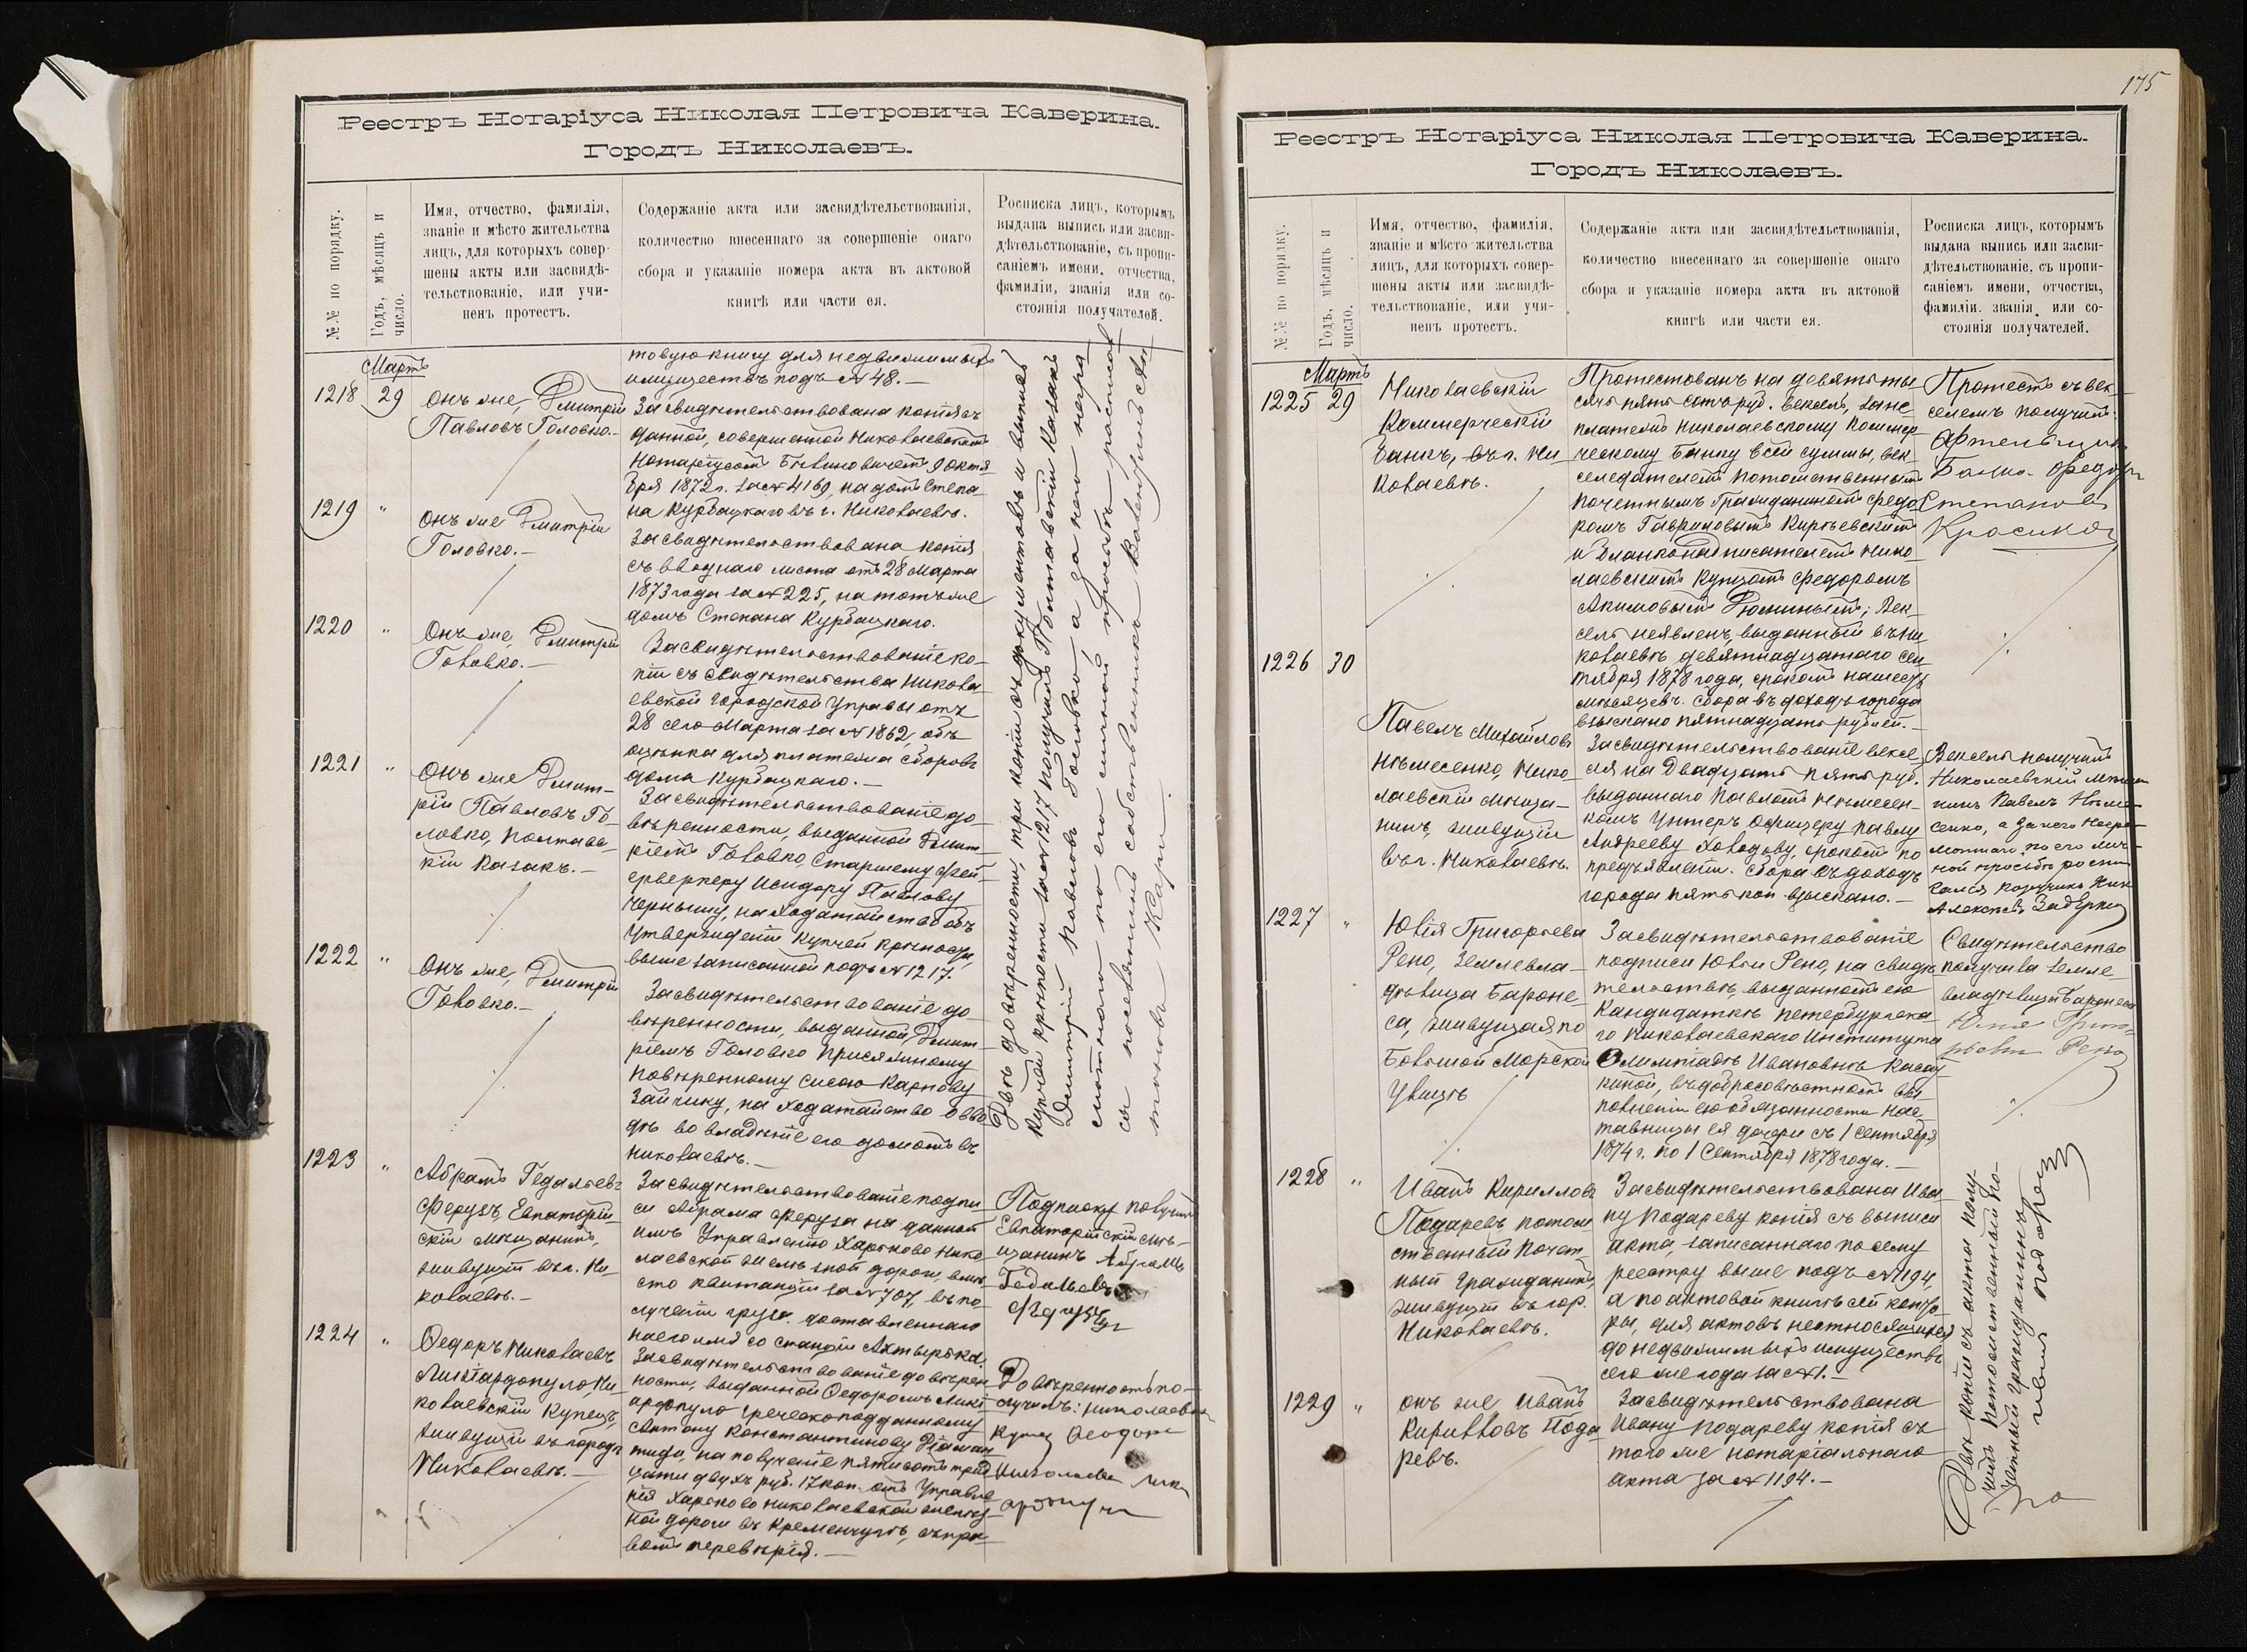 Реестръ Нотаріуса Николая Петровича Каверина.
Городъ Николаевъ.
№.№ по порядку.
Годъ, мѣсяцъ и
число.
Имя, отчество, фамилія,
званіе и мѣсто жительства
лицъ, для которыхъ совер-
шены акты или засвидѣ-
тельствованіе, или учи-
ненъ протестъ.
Содержаніе акта или засвидѣтельствованія,
количество внесеннаго за совершеніе онаго
сбора и указаніе номера акта въ актовой
книгѣ или части ея.
Росписка лицъ, которымъ
выдана выпись или засви-
дѣтельствованіе, съ пропи-
саніемъ имени, отчества,
фамиліи, званія или со-
стоянія получателей.
товую книгу для недвижимыхъ
имуществъ подъ №48.—
Мартъ
1218 29
Онъ же, Дмитрій
Павловъ Головко.—
Засвидѣтельствована копія съ
данной, совершенной Николаевскимъ
Нотаріусомъ 9 Октя
бря 1872 г. за №4169, на домъ Степа
на Курбацкаго въ г. Николаевѣ.
1219 "
Онъ же Дмитрій
Головко.—
Засвидѣтельствована копія
съ вводнаго листа отъ 28 Марта
1873 года за №225, на тотъ же
домъ Степана Курбацкаго.
1220 "
Онъ же, Дмитрій
Головко.—
Засвидѣтельствованіе ко-
піи съ свидѣтельства Никола
евской Городской Управы отъ
28 сего Марта за №1862, объ
оцѣнкѣ для платежа сборовъ
дома Курбацкаго.—
1221 "
Онъ же Дмит-
рій Павловъ Го-
ловко, Полтавс-
кій казакъ.—
Засвидѣтельствованіе до-
вѣренности, выданной Дмит-
ріемъ Головко Старшему Фей-
ерверкеру Исидору Павлову
Чернышу, на ходатайство объ
утвержденіи купчей крѣпости,
выше записанной подъ №1217.
1222 "
Онъ же, Дмитрій
Головко.—
Засвидѣтельствованіе до-
вѣренности, выданной Дмит
ріемъ Головко Присяжному
Повѣренному Сисою Карпову
Зайчику, на ходатайство о вво
дѣ во владѣніе его домомъ въ
Николаевѣ.—
Двѣ довѣренности, три копіи съ документовъ и выпись
купчей крѣпости за №1217 получилъ Полтавскій Казакъ
Дмитрій Павловъ Головко, а за него негра
мотнаго по его личной просьбѣ расписал
ся
1223 "
Абрамъ Гедальевъ
Ферузъ, Евпаторій-
скій мѣщанинъ,
живущій въ г. Ни-
колаевѣ.—
Засвидѣтельствованіе подпи
си Абрама Феруза на данной
имъ Управленію Харьково-Нико
лаевской желѣзной дороги, вмѣ-
сто квитанціи за №707, въ по-
лученіи груза, доставленнаго
на его имя со станціи Ахтырка.
Подписку получилъ
Евпаторійскій мѣ-
щанинъ Абрамъ
Гедальевъ
Ферузъ
1224 "
Ѳедоръ Николаевъ
Ликіардопуло Ни-
колаевскій Купецъ,
живущій въ городѣ
Николаевѣ.—
Засвидѣтельствованіе довѣрен
ности, выданной Ѳедоромъ Ликі-
ардопуло греческоподданному
Антону Константинову Діаман
тиди, на полученіе пятисотъ трид
цати двухъ руб. 17 коп. отъ Управле
нія Харьково Николаевской желѣз-
ной дороги въ Кременчугѣ, съ пра-
вомъ перевѣрія.—
Довѣренность по-
лучилъ: Николаевск
купец Ѳеодоръ
Николаевъ Лики
ардопуло
175
Реестръ Нотаріуса Николая Петровича Каверина.
Городъ Николаевъ.
№.№ по порядку.
Годъ, мѣсяцъ и
число.
Имя, отчество, фамилія,
званіе и мѣсто жительства
лицъ, для которыхъ совер-
шены акты или засвидѣ-
тельствованіе, или учи-
ненъ протестъ.
Содержаніе акта или засвидѣтельствованія,
количество внесеннаго за совершеніе онаго
сбора и указаніе номера акта въ актовой
книгѣ или части ея.
Росписка лицъ, которымъ
выдана выпись или засви-
дѣтельствованіе, съ пропи-
саніемъ имени, отчества,
фамиліи, званія или со-
стоянія получателей.
Мартъ
1225 29
Николаевскій
Коммерческій
Банкъ, въ г. Ни
колаевѣ.
Протестованъ на девять ты
сячъ пять сотъ руб. вексель, за не-
платежъ Николаевскому Коммер-
ческому Банку всей суммы, век-
селедателемъ Потомственнымъ
Почетнымъ Гражданиномъ Федо
ромъ Гавриловымъ Киріевскимъ
и бланконадписателемъ Нико-
лаевскимъ Купцомъ Федоромъ
Акимовымъ Дюминымъ; век-
сель неявленъ, выданный въ Ни
колаевѣ девятнадцатаго Сен
тября 1878 года, срокомъ на шесть
мѣсяцевъ. Сбора въ доходъ города
взыскано пятнадцать рублей.—
Протестъ съ век
селемъ получилъ:
Артельщик
Банка Федоръ
Степановъ
1226 30
Павелъ Михайловъ
Нѣмесенко, Нико
лаевскій мѣща-
нинъ, живущій
въ г. Николаевѣ.
Засвидѣтельствованіе вексе
ля на двадцать пять руб.
выданнаго Павломъ Нѣмесен-
комъ Унтеръ Офицеру Павлу
Андрееву Холодову, срокомъ по
предъявленіи. Сбора въ доходъ
города пять коп. взыскано.—
Вексель получилъ
Николаевскій мѣща
нинъ Павелъ Нѣме
сенко, а за него негра
мотнаго, по его лич-
ной просьбѣ роспи
сался поручикъ Ник
Алексѣевъ
1227 "
Юлія Григорьева
Рено, Землевла-
дѣлица Бароне-
са, живущая по
Большой Морской
Улицѣ
Засвидѣтельствованіе
подписи Юліи Рено, на свидѣ
тельствѣ, выданномъ ею
Кандидаткѣ Петербургска
го Николаевскаго Института
Олимпіадѣ Ивановнѣ Касат
киной, въ добросовѣстномъ вы
полненіи ею обязанности нас-
тавницы ея дочери съ 1 Сентября
1874 г. по 1 Сентября 1878 года.—
Свидѣтельство
получила земле
владѣлица Баронеса
Юлія Григо-
рьева Рено
1228 "
Иванъ Кирилловъ
Подаревъ потом
ственный Почет-
ный Гражданинъ
живущій въ гор.
Николаевѣ.
Засвидѣтельствована Ива
ну Подареву копія съ выписи
акта, записаннаго по сему
реестру выше подъ №1194,
а по актовой книгѣ сей конто-
ры, для актовъ неотносящихся
до недвижимыхъ имуществъ
сего же года за №1.—
1229 "
Онъ же Иванъ
Кирилловъ Пода
ревъ.
Засвидѣтельствована
Ивану Подареву копія съ
того же нотаріальнаго
акта за №1194.—
Двѣ копіи съ акта полу
чилъ потомственный по
четный гражданинъ